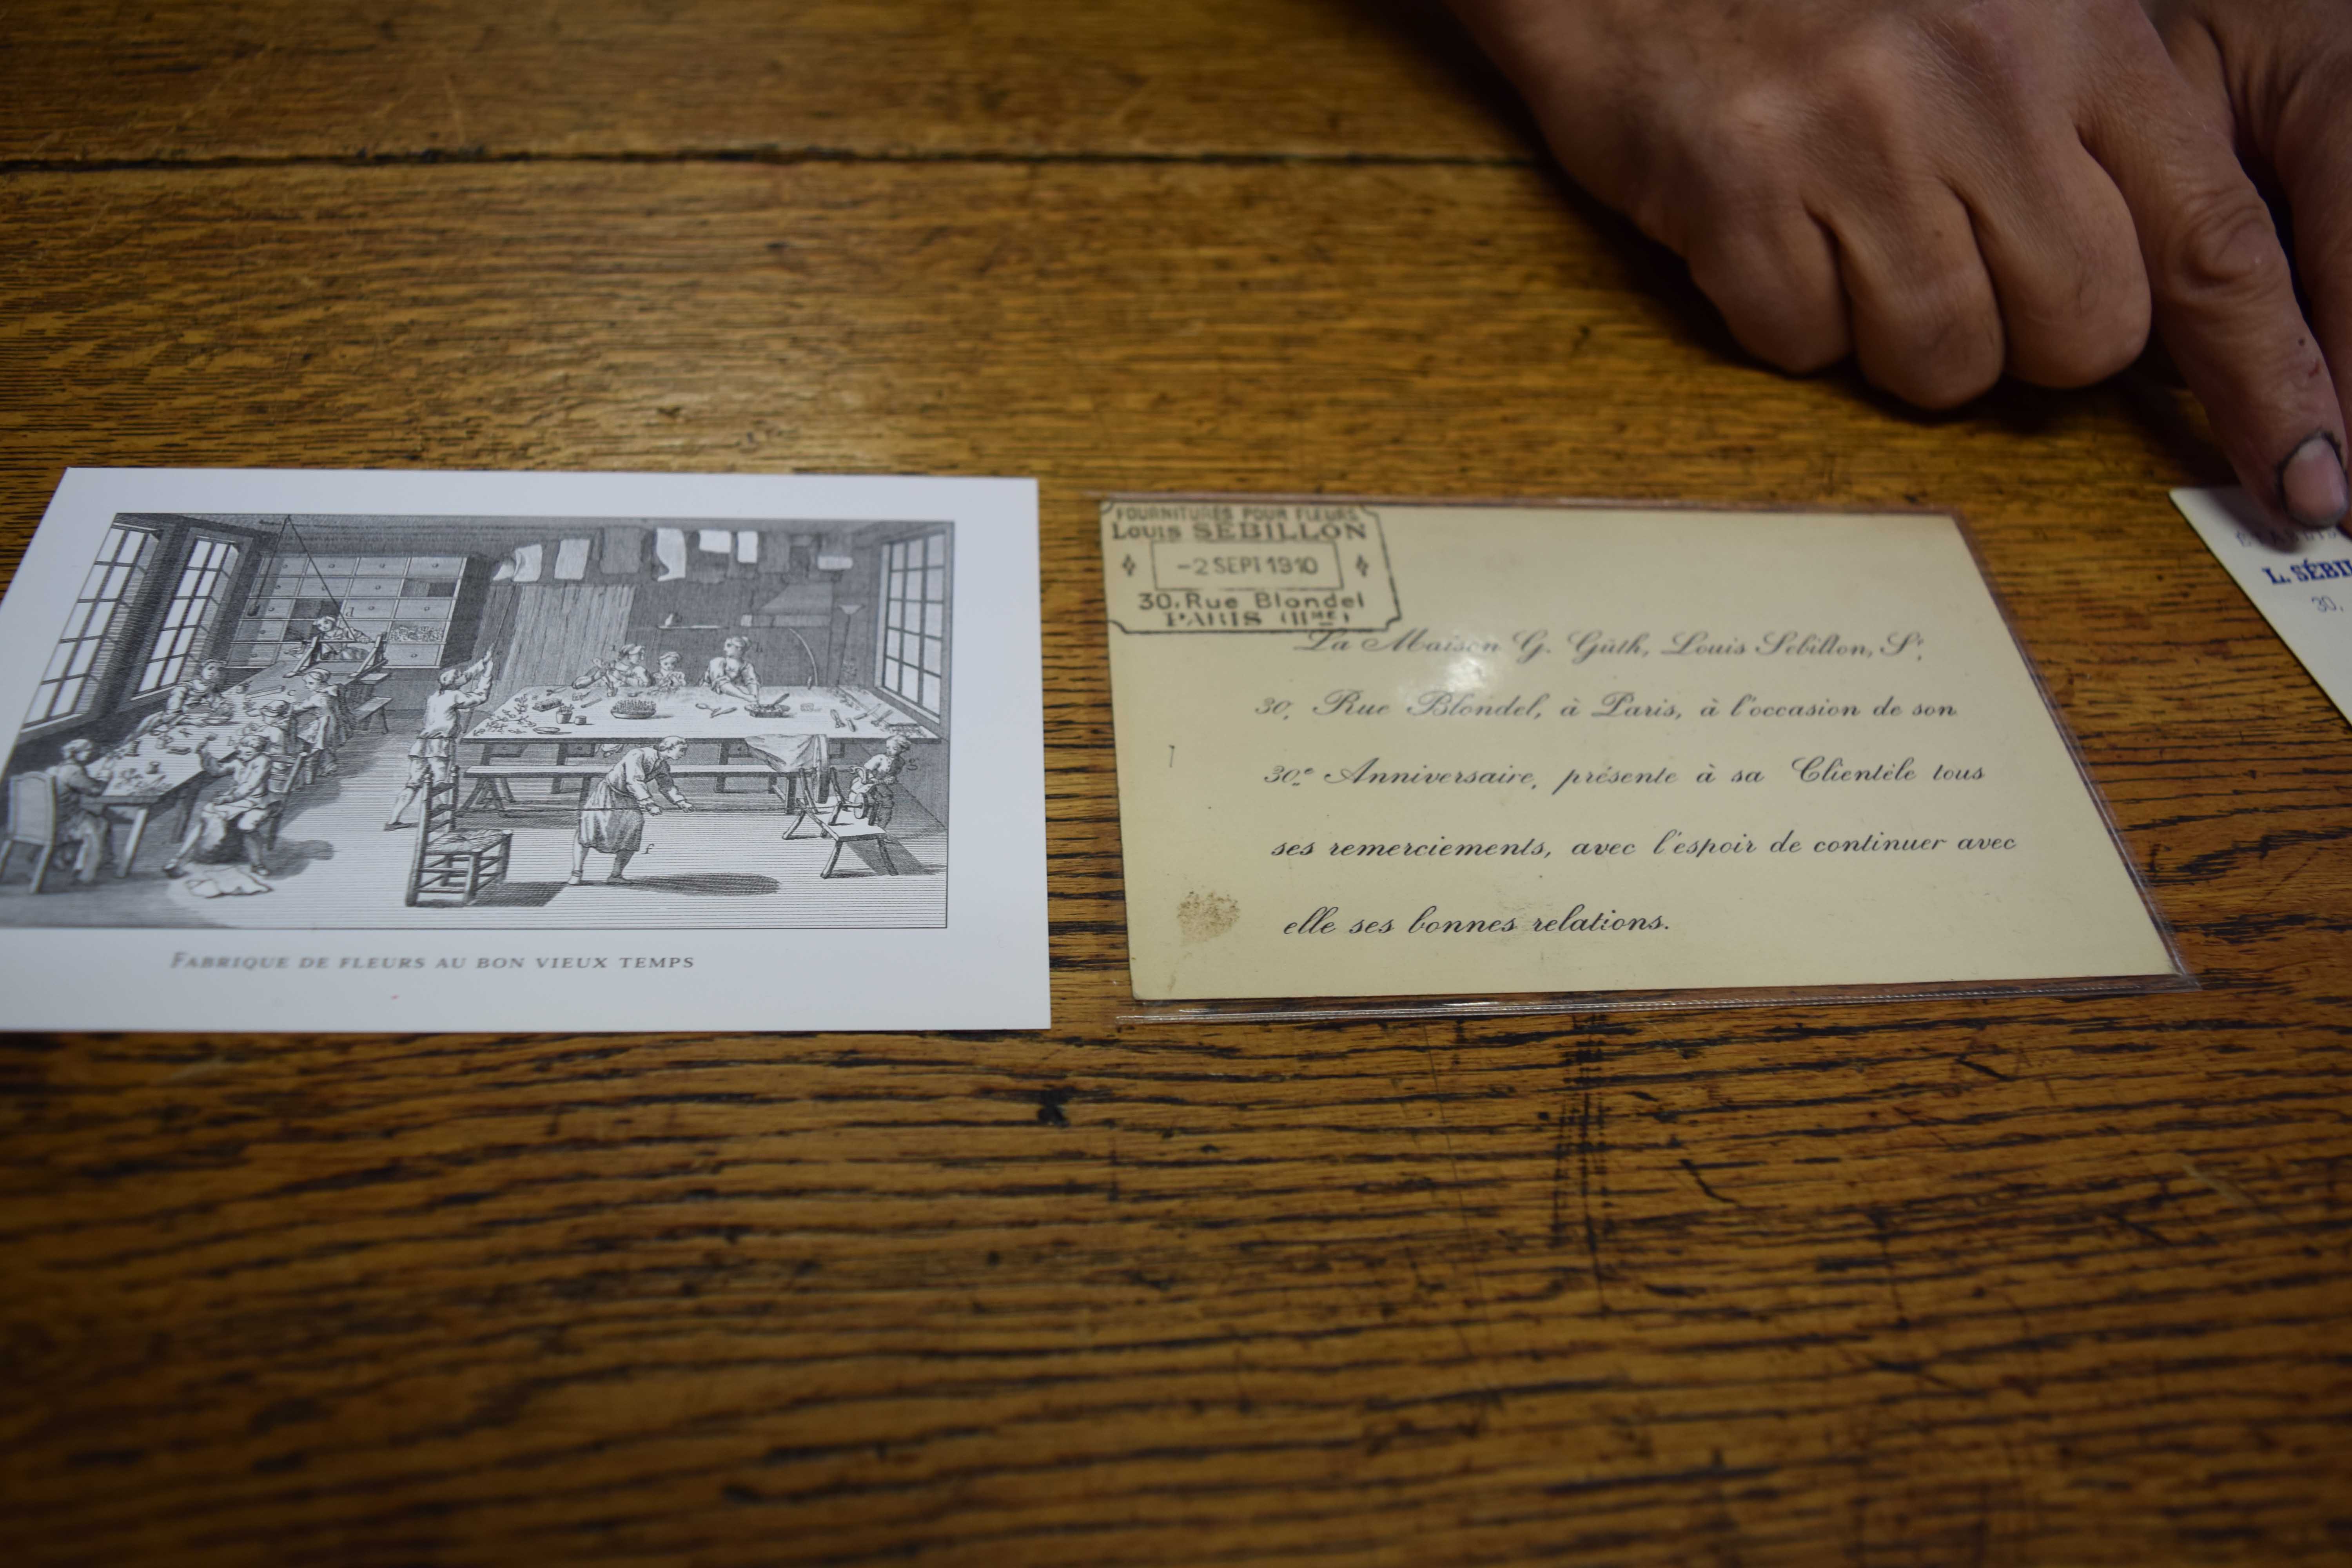 FABRIQUE DE FLEURS AU BON VIEUX TEMPS
FOURNITURES POUR FLEURS
Louis SÉBILLON
-2 SEPT 1910
30, Rue Blondel
PARIS (IIME)
La Maison G. Güth, Louis Sébillon, Sr,
30, Rue Blondel, à Paris, à l'occasion de son
30e Anniversaire, présente à sa Clientèle tous
ses remerciements, avec l'espoir de continuer avec
elle ses bonnes relations.
L. SÉBI
30,